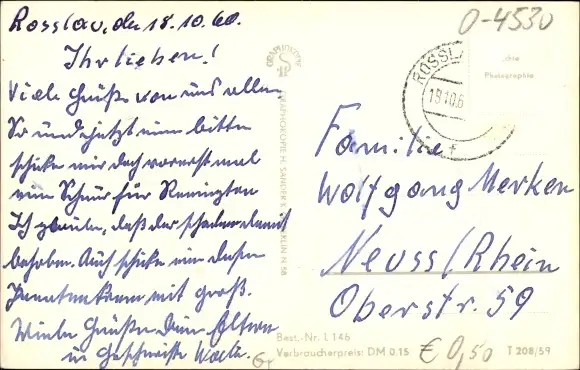 Rosslau, den 18.10.60.
Ihr lieben!
Viele Grüße von uns allen.
So und jetzt nun bitte
schicke mir doch vorerst mal
eine Schnur für Remington
Ich glaube, daß der schaden damit
behoben. Auch schicke
mit groß.
Viele Grüße Deine Eltern
0-4530
ROSSL
18.10.6
Echte
Photographie
GRAPHOKOPIE
GRAPHOKOPIE H. SANDER K BERLIN N 58
Familie
Wolfgang Merken
Neuss/Rhein
Oberstr. 59
Best.-Nr. L 146
Verbraucherpreis: DM 0.15
€ 0,50
T 208/59